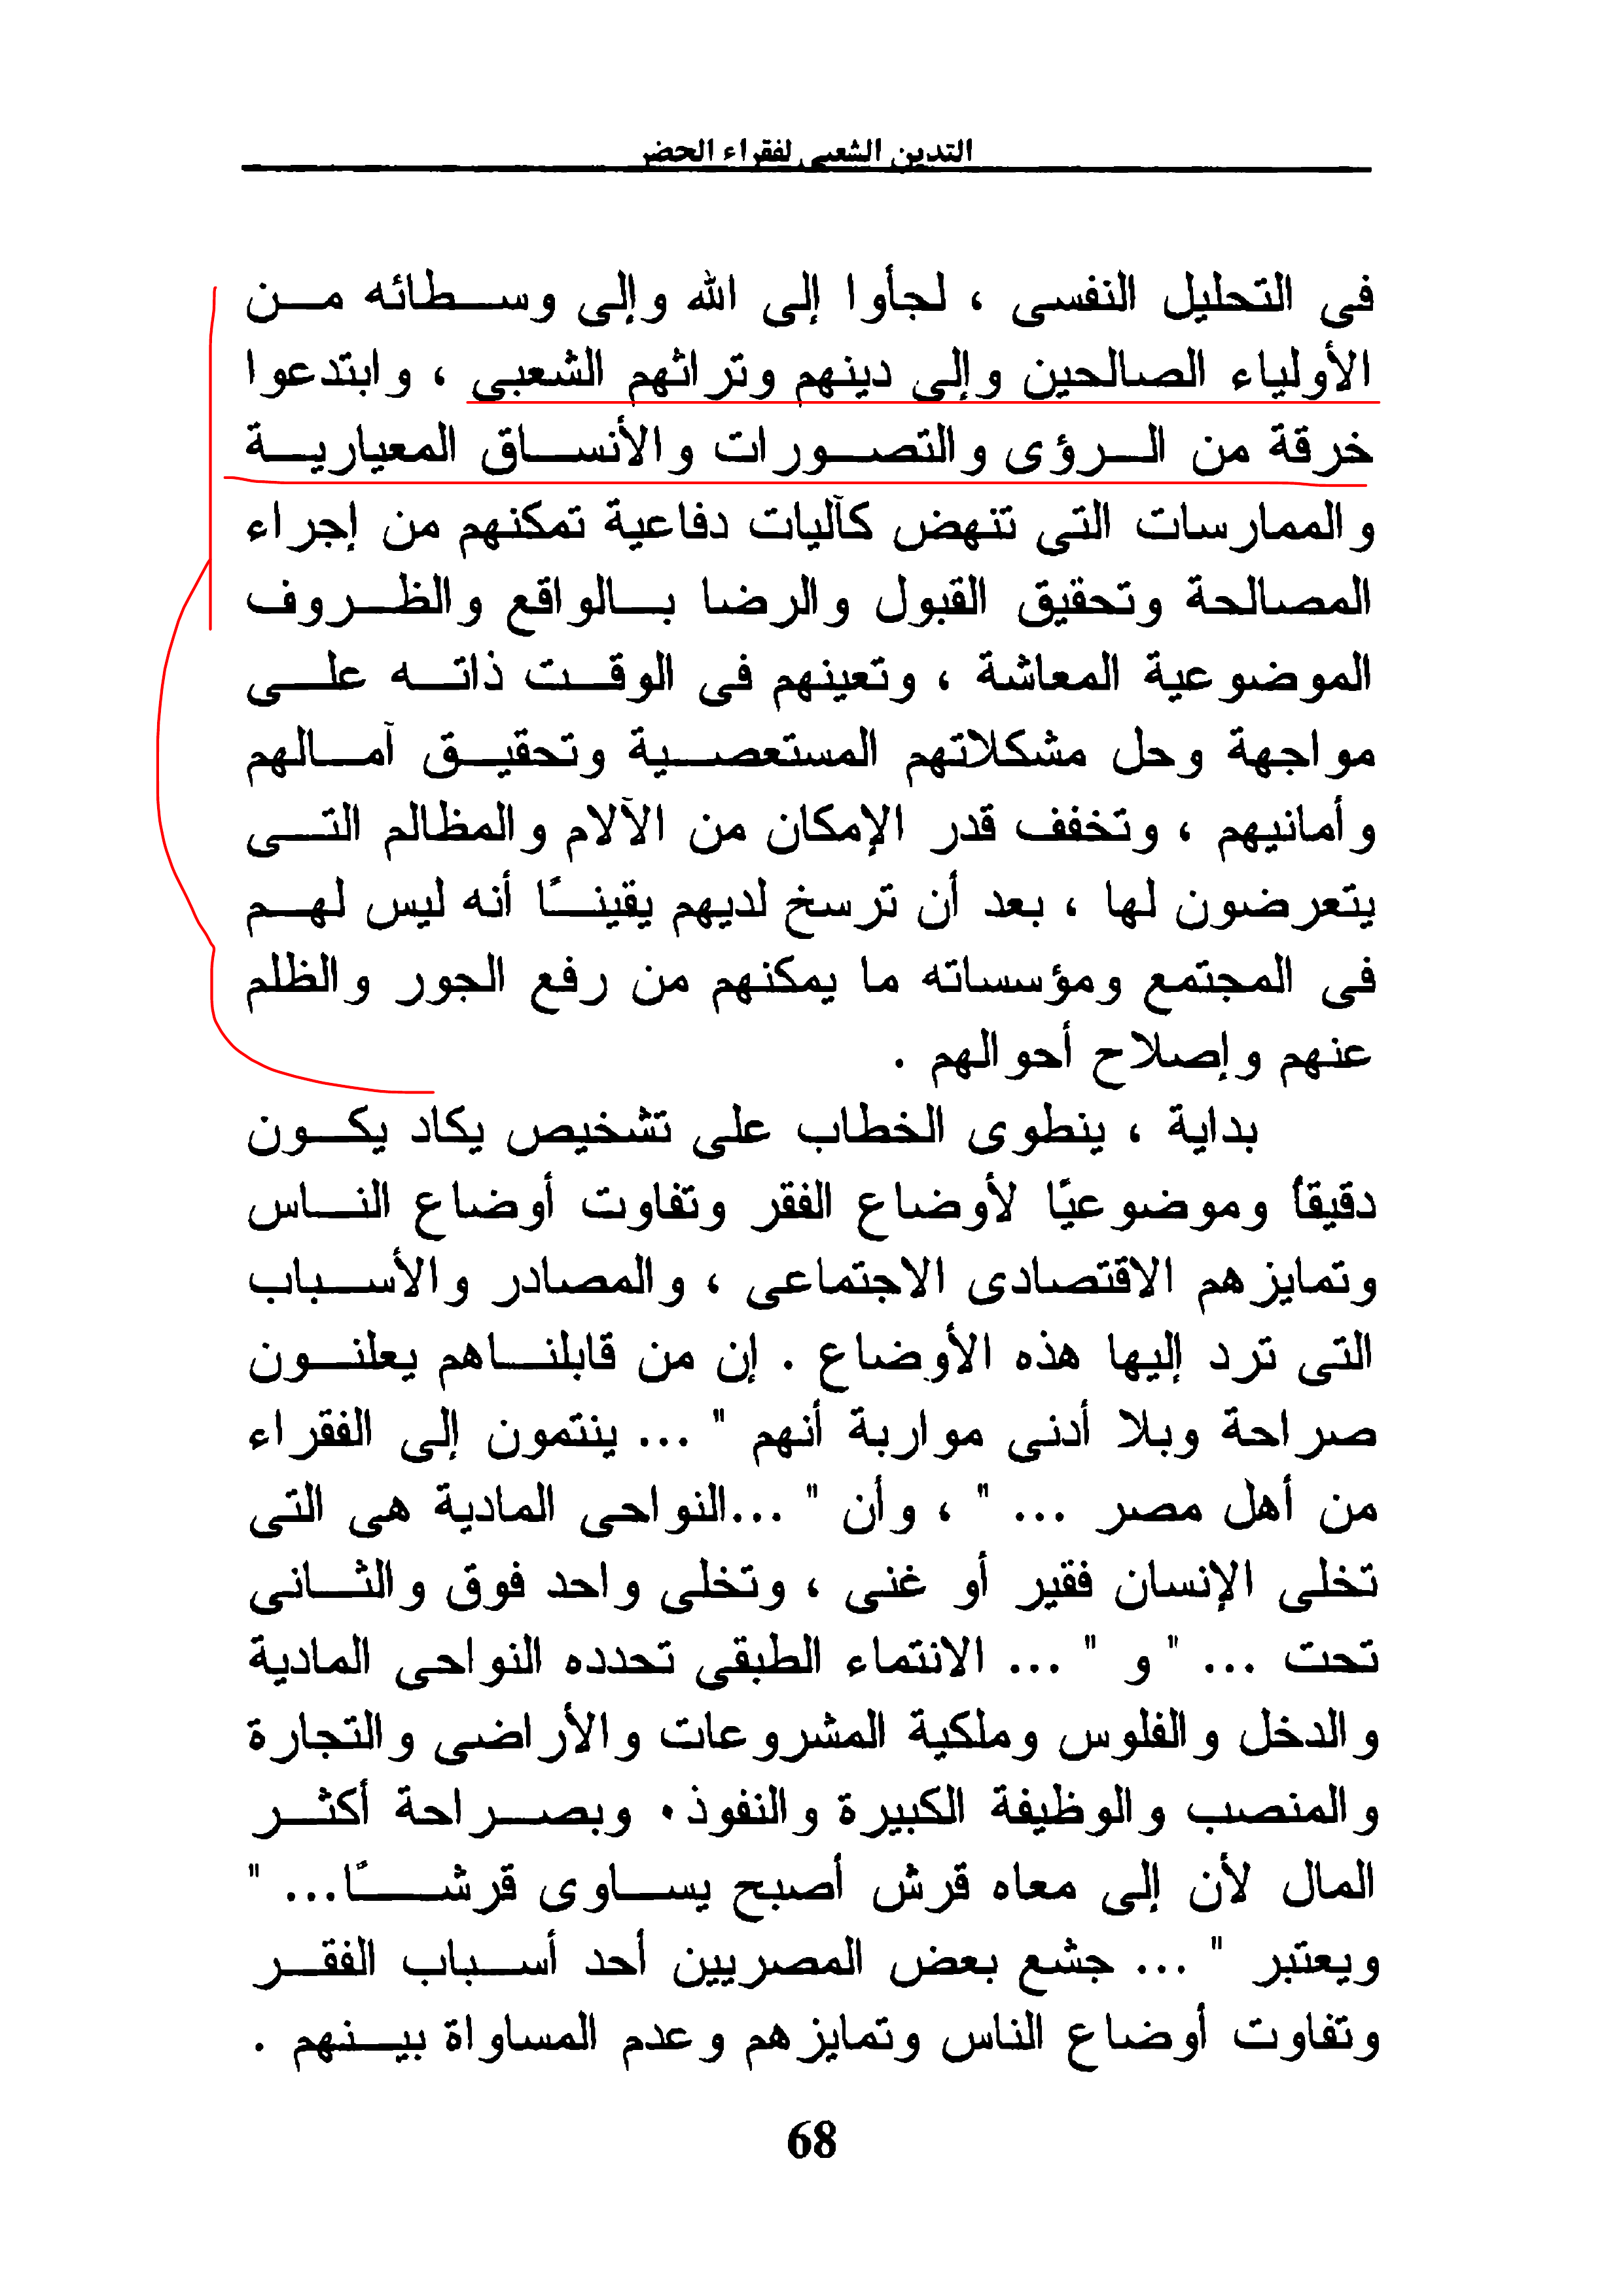 التدين الشعبى لفقراء الحضر
فى التحليل النفسى ، لجأوا إلى الله وإلى وسطائه من
الأولياء الصالحين وإلى دينهم وتراثهم الشعبى ، وابتدعوا
خرقة من الرؤى والتصورات والأنساق المعيارية
والممارسات التى تنهض كآليات دفاعية تمكنهم من إجراء
المصالحة وتحقيق القبول والرضا بالواقع والظروف
الموضوعية المعاشة ، وتعينهم فى الوقت ذاته على
مواجهة وحل مشكلاتهم المستعصية وتحقيق آمالهم
وأمانيهم ، وتخفف قدر الإمكان من الآلام والمظالم التى
يتعرضون لها ، بعد أن ترسخ لديهم يقينًا أنه ليس لهم
فى المجتمع ومؤسساته ما يمكنهم من رفع الجور والظلم
عنهم وإصلاح أحوالهم .
بداية ، ينطوى الخطاب على تشخيص يكاد يكون
دقيقاً وموضوعيًا لأوضاع الفقر وتفاوت أوضاع الناس
وتمايزهم الاقتصادى الاجتماعى ، والمصادر والأسباب
التى ترد إليها هذه الأوضاع . إن من قابلناهم يعلنون
صراحة وبلا أدنى مواربة أنهم " ... ينتمون إلى الفقراء
من أهل مصر ... " ، وأن " ...النواحى المادية هى التى
تخلى الإنسان فقير أو غنى ، وتخلى واحد فوق والثانى
تحت ... " و " ... الانتماء الطبقى تحدده النواحى المادية
والدخل والفلوس وملكية المشروعات والأراضى والتجارة
والمنصب والوظيفة الكبيرة والنفوذ. وبصراحة أكثر
المال لأن إلى معاه قرش أصبح يساوى قرشًا... "
ويعتبر " ... جشع بعض المصريين أحد أسباب الفقر
وتفاوت أوضاع الناس وتمايزهم وعدم المساواة بينهم .
68